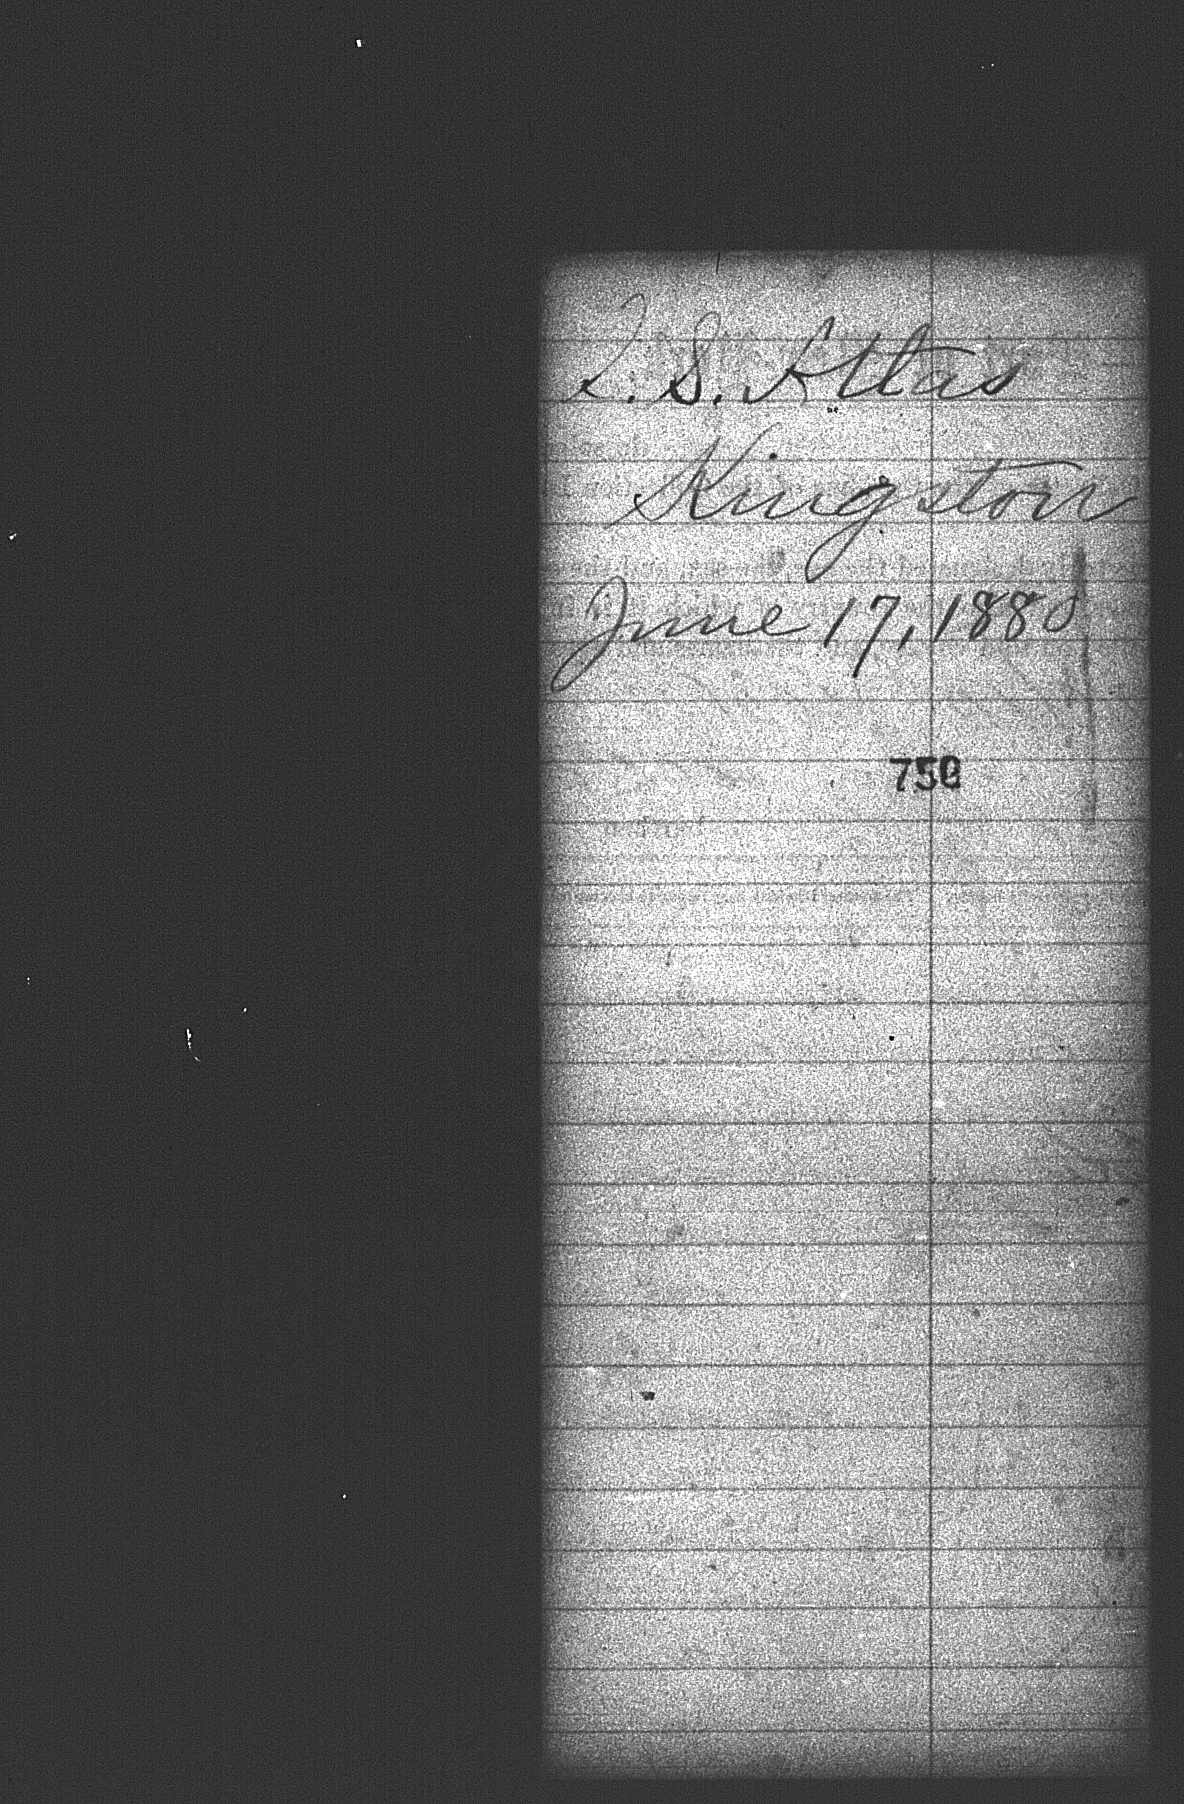 I. S. Atlas
Kingston
June 17, 1880
750